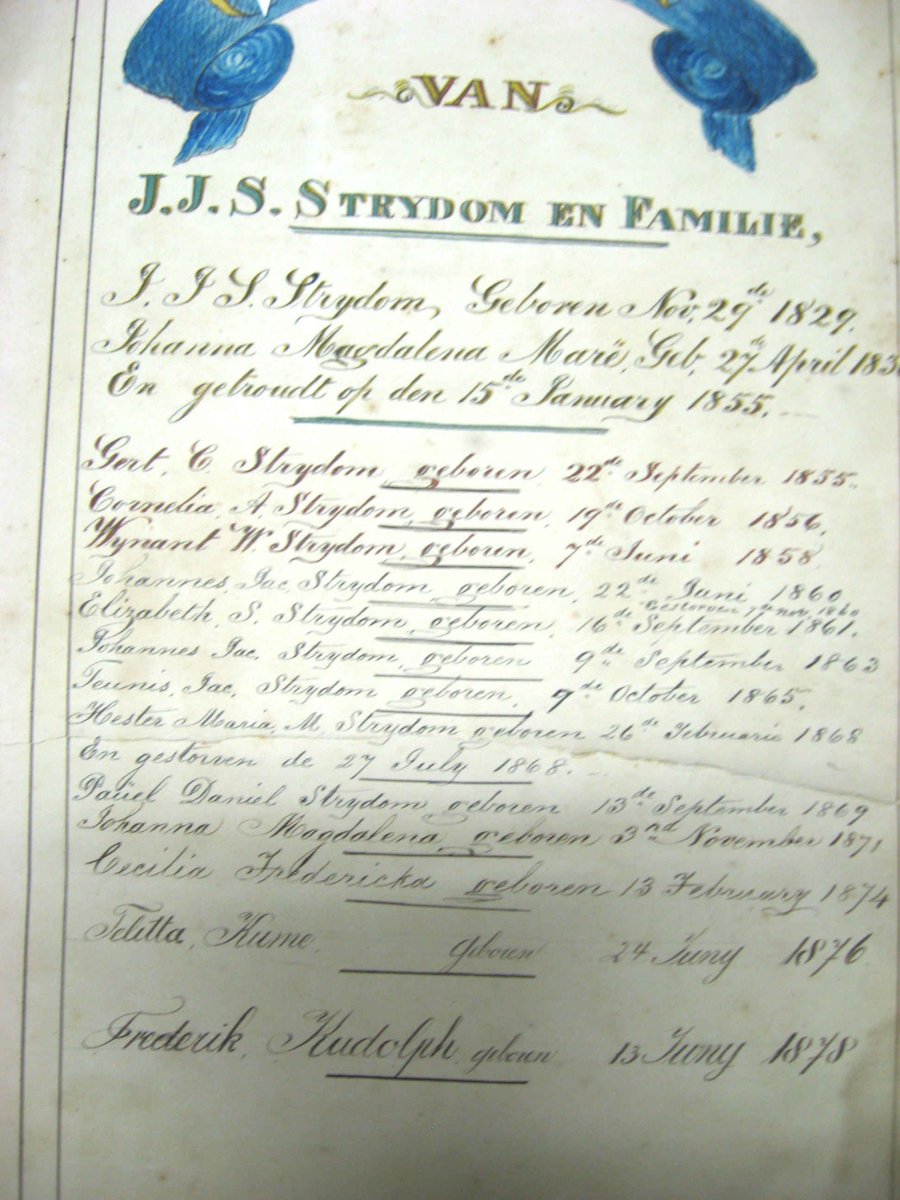 VAN
J.J.S. STRYDOM EN FAMILIE,
J. J S. Strydom, Geboren Nov, 29de 1829.
Johanna Magdalena Maré, Geb, 27de April 183
En getroudt op den 15de January 1855.
Gert, C. Strydom, geboren, 22de September 1855.
Cornelia, A. Strydom, geboren, 19de October 1856,
Wynant W. Strydom, geboren, 7de Juni 1858
Johannes, Jac, Strydom, geboren, 22de Juni 1860
Gestorven 7de nov. 1860
Elizabeth, S. Strydom, geboren, 16de September 1861.
Johannes Jac. Strydom, geboren 9de September 1863
Teunis, Jac, Strydom geboren, 9de October 1865.
Hester Maria, M, Strydom geboren 26de Februarie 1868
En gestorven de 27 July 1868.
Paüel Daniel Strydom geboren 13de September 1869
Johanna Magdalena, geboren 3nd November 1871
Cecilia Fredericka geboren 13 February 1874
geboren 24 Juny 1876
Frederik, Rudolph, geboren 13 Juny 1878